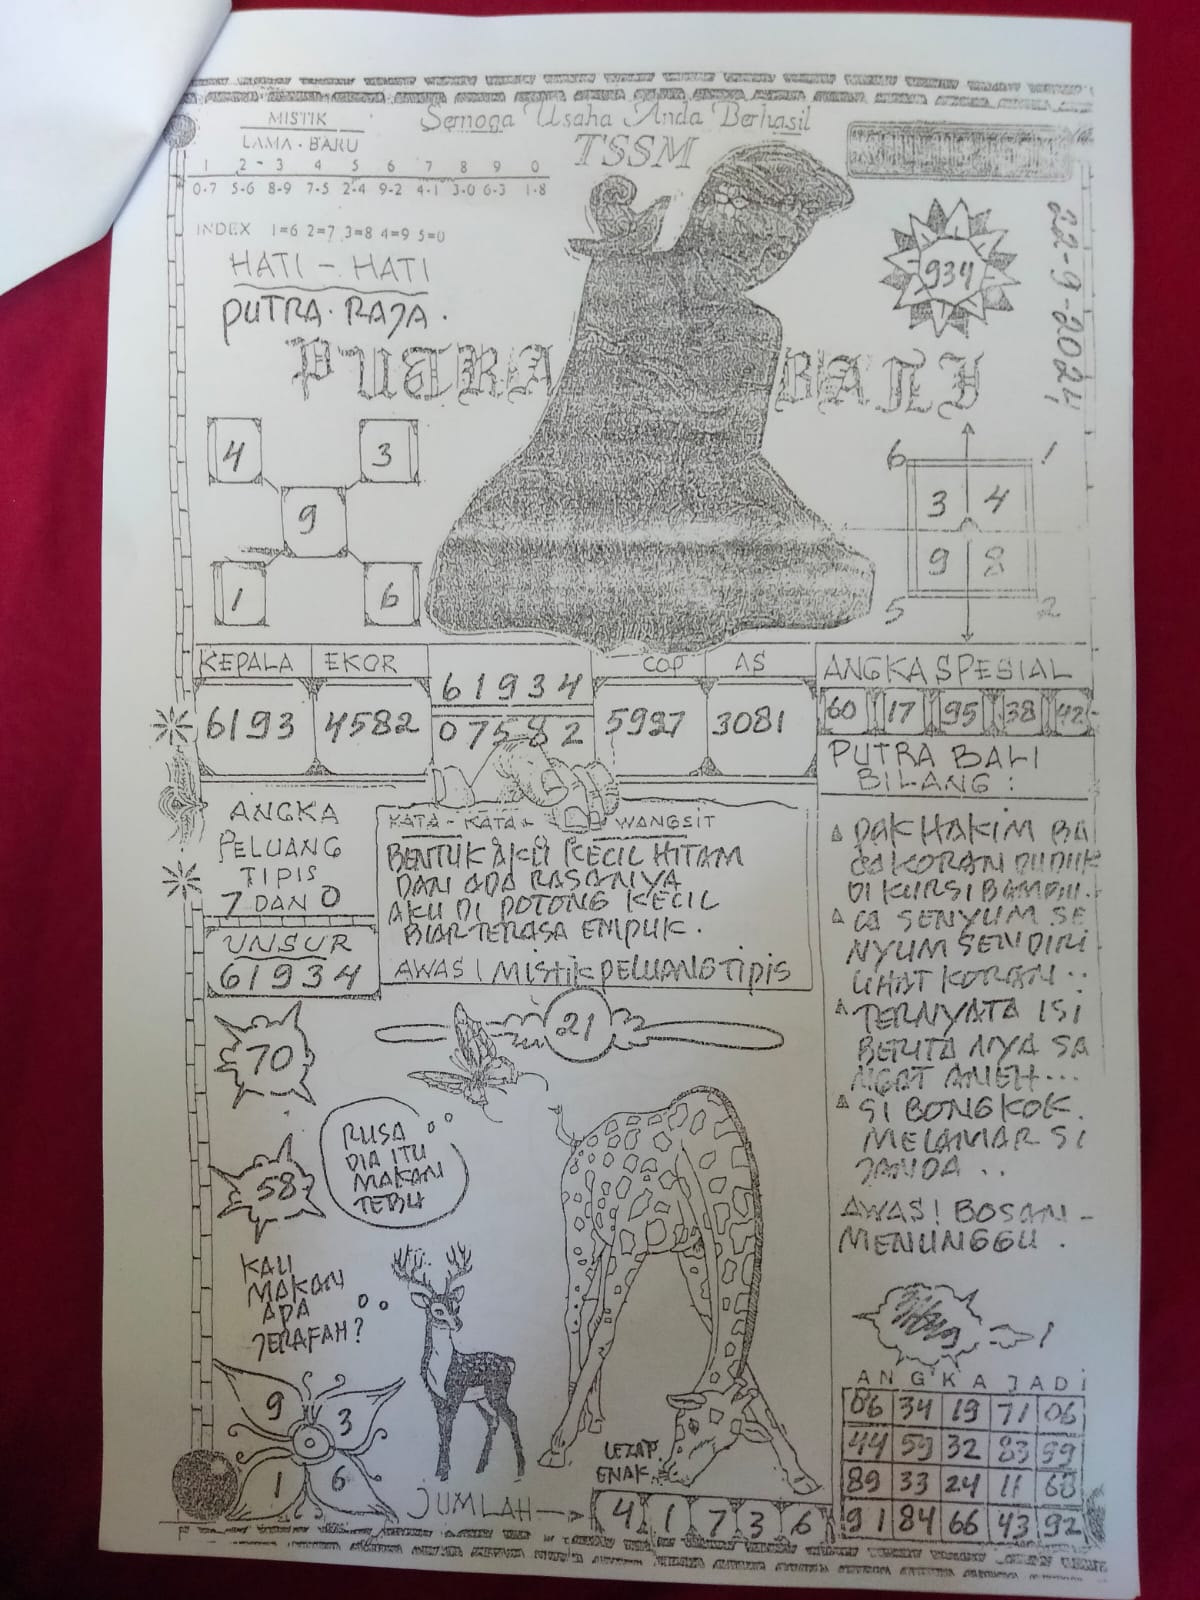 MISTIK
LAMA - BARU
1 2 3 4 5 6 7 8 9 0
0-7 5-6 8-9 7-5 2-4 9-2 4-1 3-0 6-3 1-8
INDEX 1=6 2=7 3=8 4=9 5=0
Semoga Usaha Anda Berhasil
TSSM
22-9-2024
934
HATI - HATI
PUTRA. RAJA.
PUTRA BALI
4 3
9
1 6
6 1
3 4
9 8
5 2
KEPALA EKOR
6193 4582
61934
07582
COP AS
5927 3081
ANGKA SPESIAL
60 17 95 38 42
ANGKA
PELUANG
TIPIS
7 DAN 0
UNSUR
61934
KATA - KATA - WANGSIT
BENTUK AKU KECIL HITAM
DAN ADA RASANYA
AKU DI POTONG KECIL
BIAR TERASA EMPUK.
AWAS! MISTIK PELUANG TIPIS
PUTRA BALI
BILANG:
PAK HAKIM BA
CA KORAN DUDUK
DI KURSI
CA SENYUM SE
NYUM SENDIRI
LIHAT KORAN..
TERNYATA ISI
BERITA NYA SA
NGAT ANEH...
SI BONGKOK.
MELAMAR SI
JANDA..
AWAS! BOSAN-
MENUNGGU.
70
21
58
RUSA
DIA ITU
MAKAN
TEBU
KAU
MAKAN
APA
JERAFAH?
9 3
1 6
LEZAP
ENAK
JUMLAH
4 1 7 3 6
ANGKA JADI
06 34 19 71 06
44 59 32 83 99
89 33 24 11 68
91 84 66 43 92